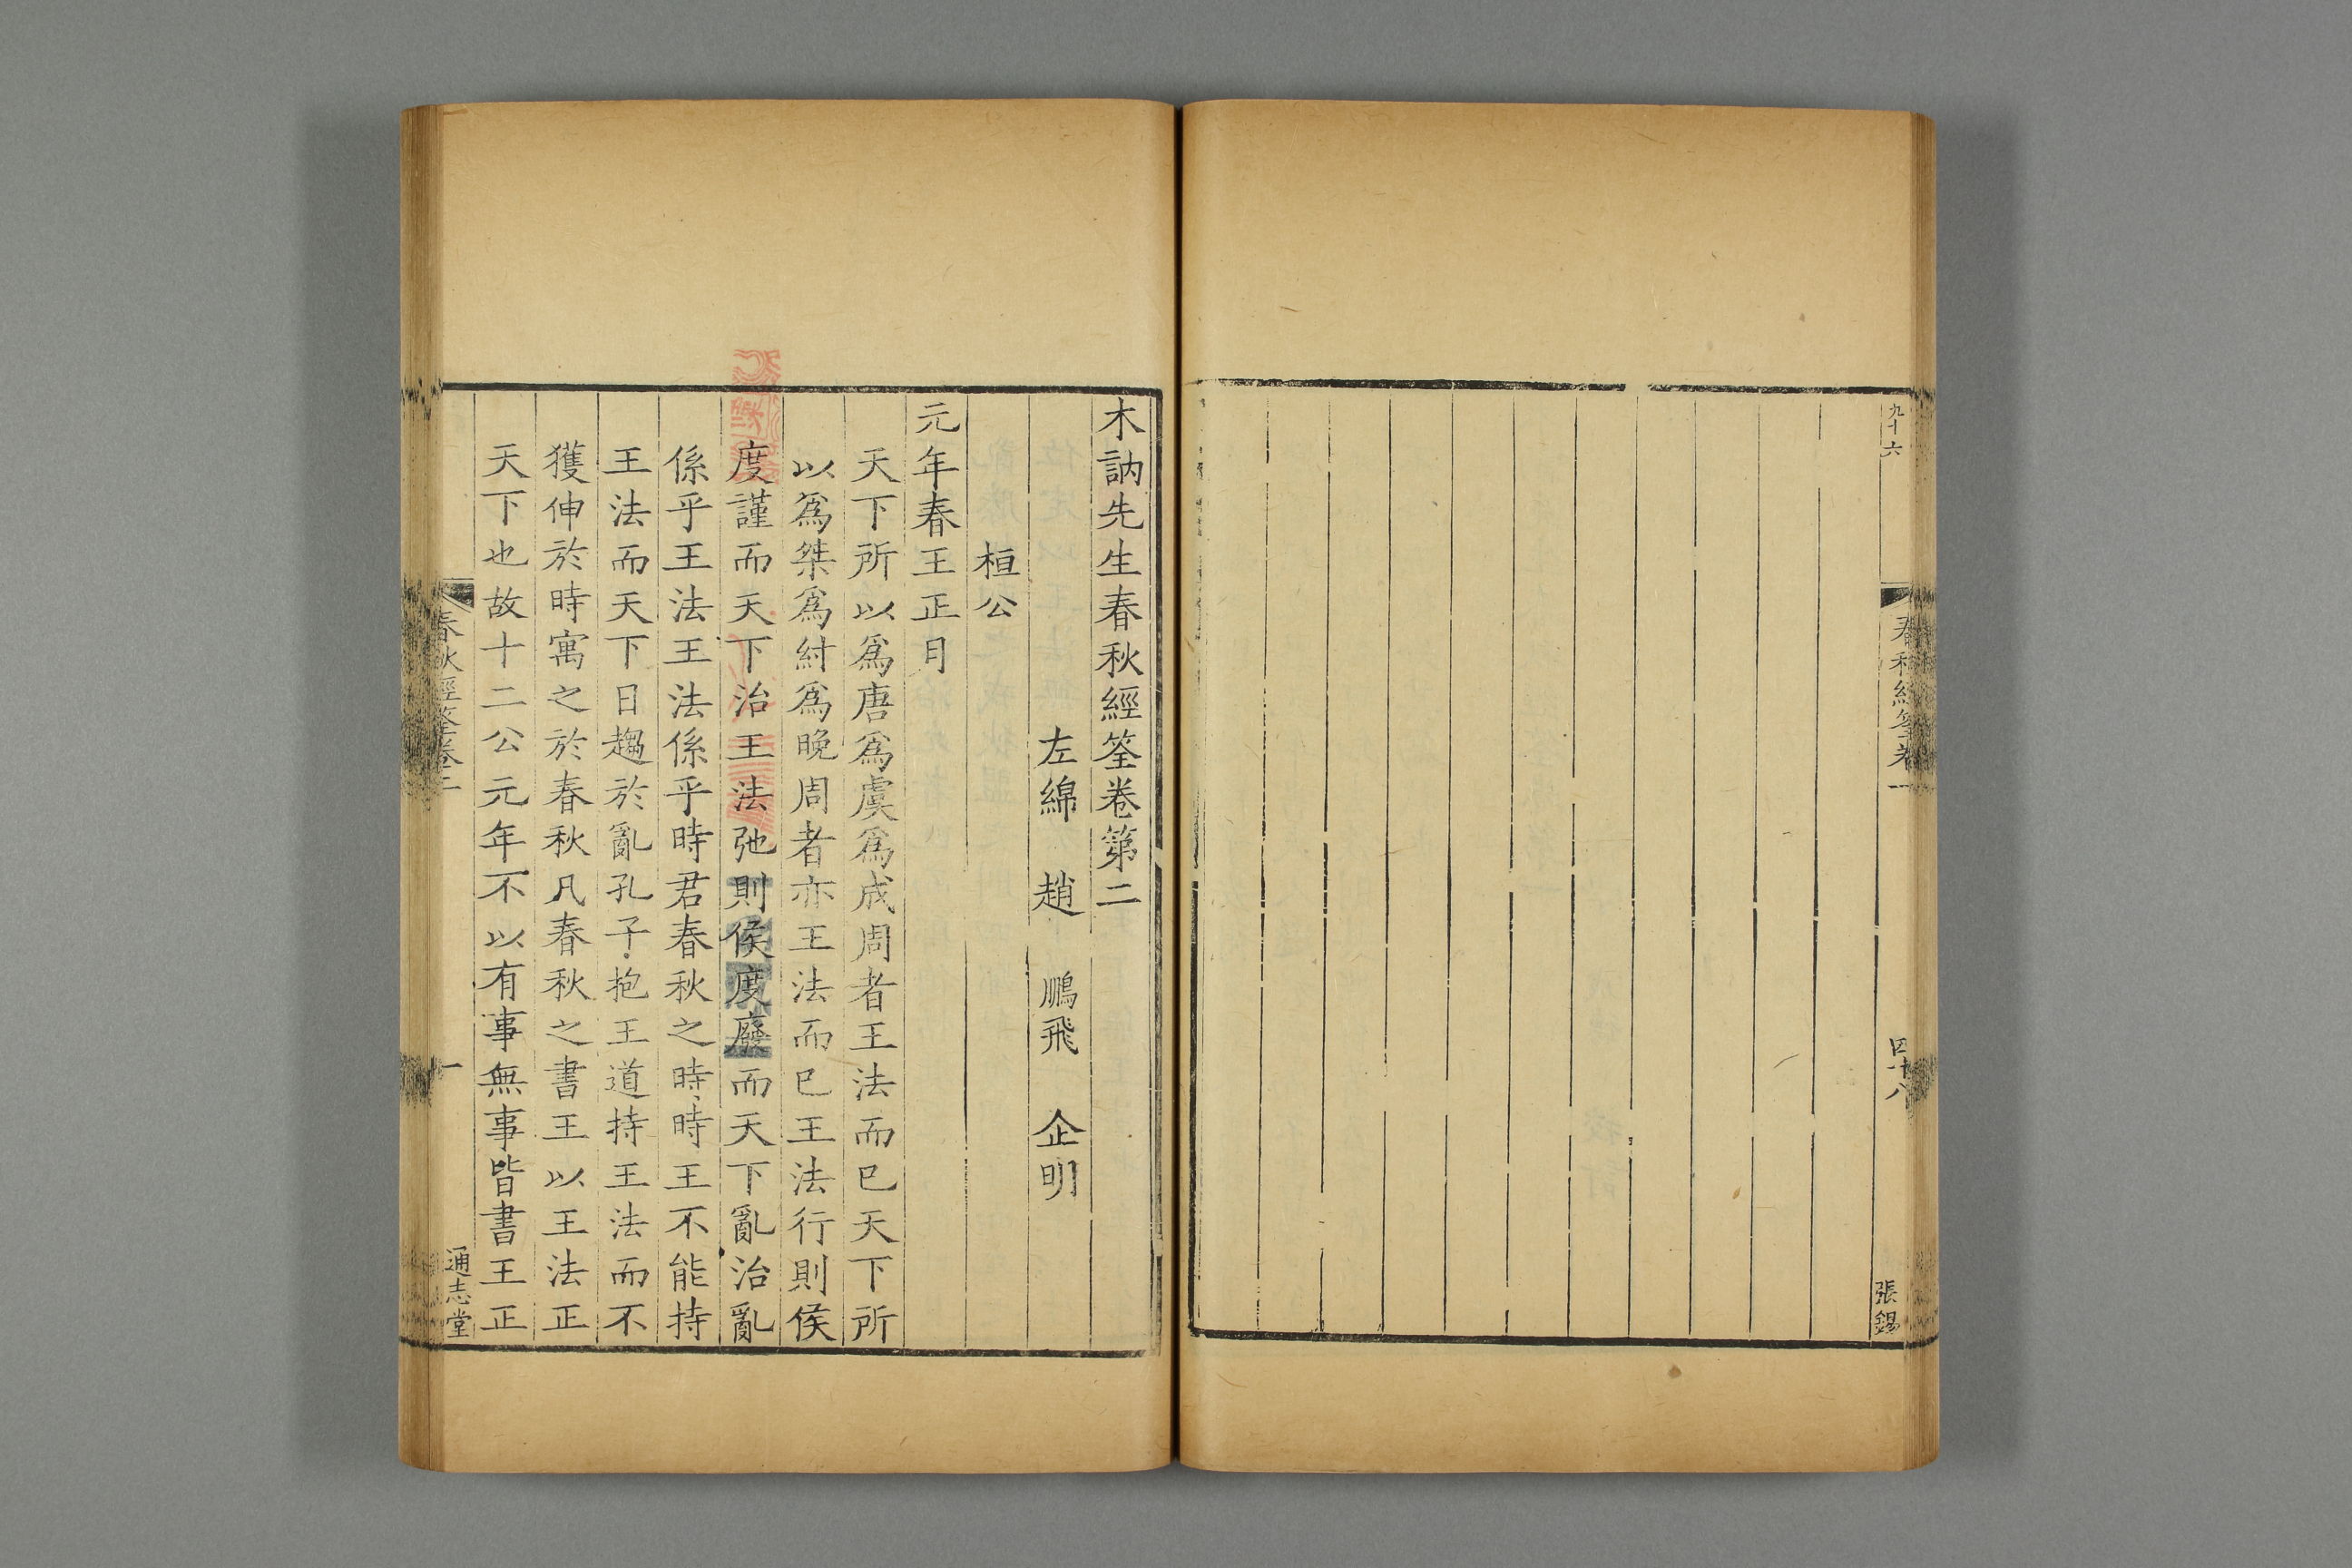 九十六
春秋經筌卷一
四十八
張錫
木訥先生春秋經筌卷第二
左綿 趙 鵬飛 企明
桓公
元年春王正月
天下所以爲唐爲虞爲成周者王法而巳天下所
以爲桀爲紂爲晚周者亦王法而巳王法行則侯
度謹而天下治王法弛則侯度廢而天下亂治亂
係乎王法王法係乎時君春秋之時時王不能持
王法而天下日趨於亂孔子抱王道持王法而不
獲伸於時寓之於春秋凡春秋之書王以王法正
天下也故十二公元年不以有事無事皆書王正
春秋經筌卷二
一
通志堂